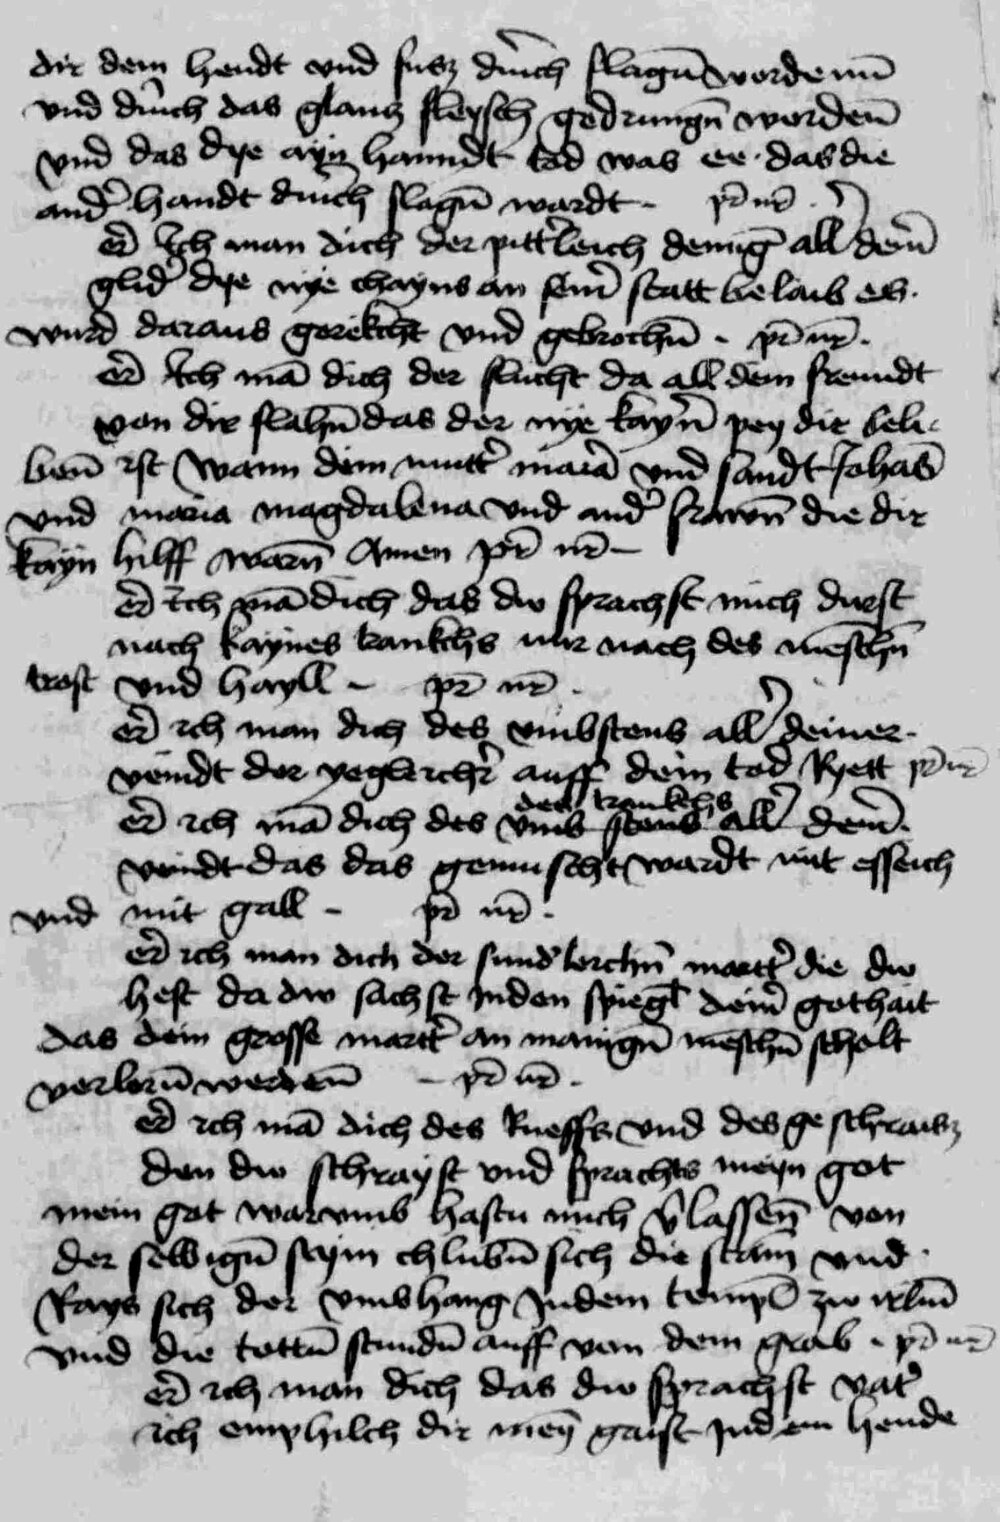 dir dein hendt vnd fusz durich slagn̄ wordenn̄
vnd durich das glantz fleysch gedrungn̄ wurden̄
vnd das dye ayn hanndt tod was ee das die
and' handt durich slagn̄ wardt – pr̄ nr̄
er̄ Ich man dich der pitt'leich denuḡ all dein̄
glid' dye nye chayns an sein̄ statt belaib es
wurd daraus gerekcht vnd gebrochn̄ – pr̄ nr̄
er̄ Ich mā dich der flucht da all dein freundt
von dir flahn̄ das der nye kayn̄ pey dir beli
ben̄ ist wann dein mutt' mariā vnd sandt Johās
vnd maria magdalena vnd and' frawn̄ die dir
kayn hilff warn̄ Amen pr̄ nr̄ –
er̄ Ich mā dich das dw sprachst mich durst
nach kaynes trankchs nur nach des menschn̄
trost vnd hayll – pr̄ nr̄
er̄ ich man dich des vmbstens all' deiner
veindt der yegleich' auff dein tod Ryett pr̄ nr̄
des trankchs
er̄ ich mā dich des vmb stens all' dein̄
veindt das das gemischt wardt mit esseich
vnd mit gall – pr̄ nr̄
er̄ ich man dich der sund'leichn̄ martt' die dw
hest da dw sachst Inden spiegl dein' gothait
das dein grosse martt' an manign̄ menschn̄ scholt
verlorn̄ werden̄ – pr̄ nr̄
er̄ ich mā dich des Rueffs vnd des geschraisz
den dw schrayst vnd sprachts meyn got
mein got warvmb hastu mich v'lassen̄ von
der selbign̄ stym chlubn̄ sich die stain vnd
Rays sich der vmbhang Indem templ̄ zw irlm̄
vnd die tottn̄ stundn̄ auff von dem grab – pr̄ nr̄
er̄ ich man dich das dw sprachst vat'
ich emphilch dir mein̄ gaist Indein hende